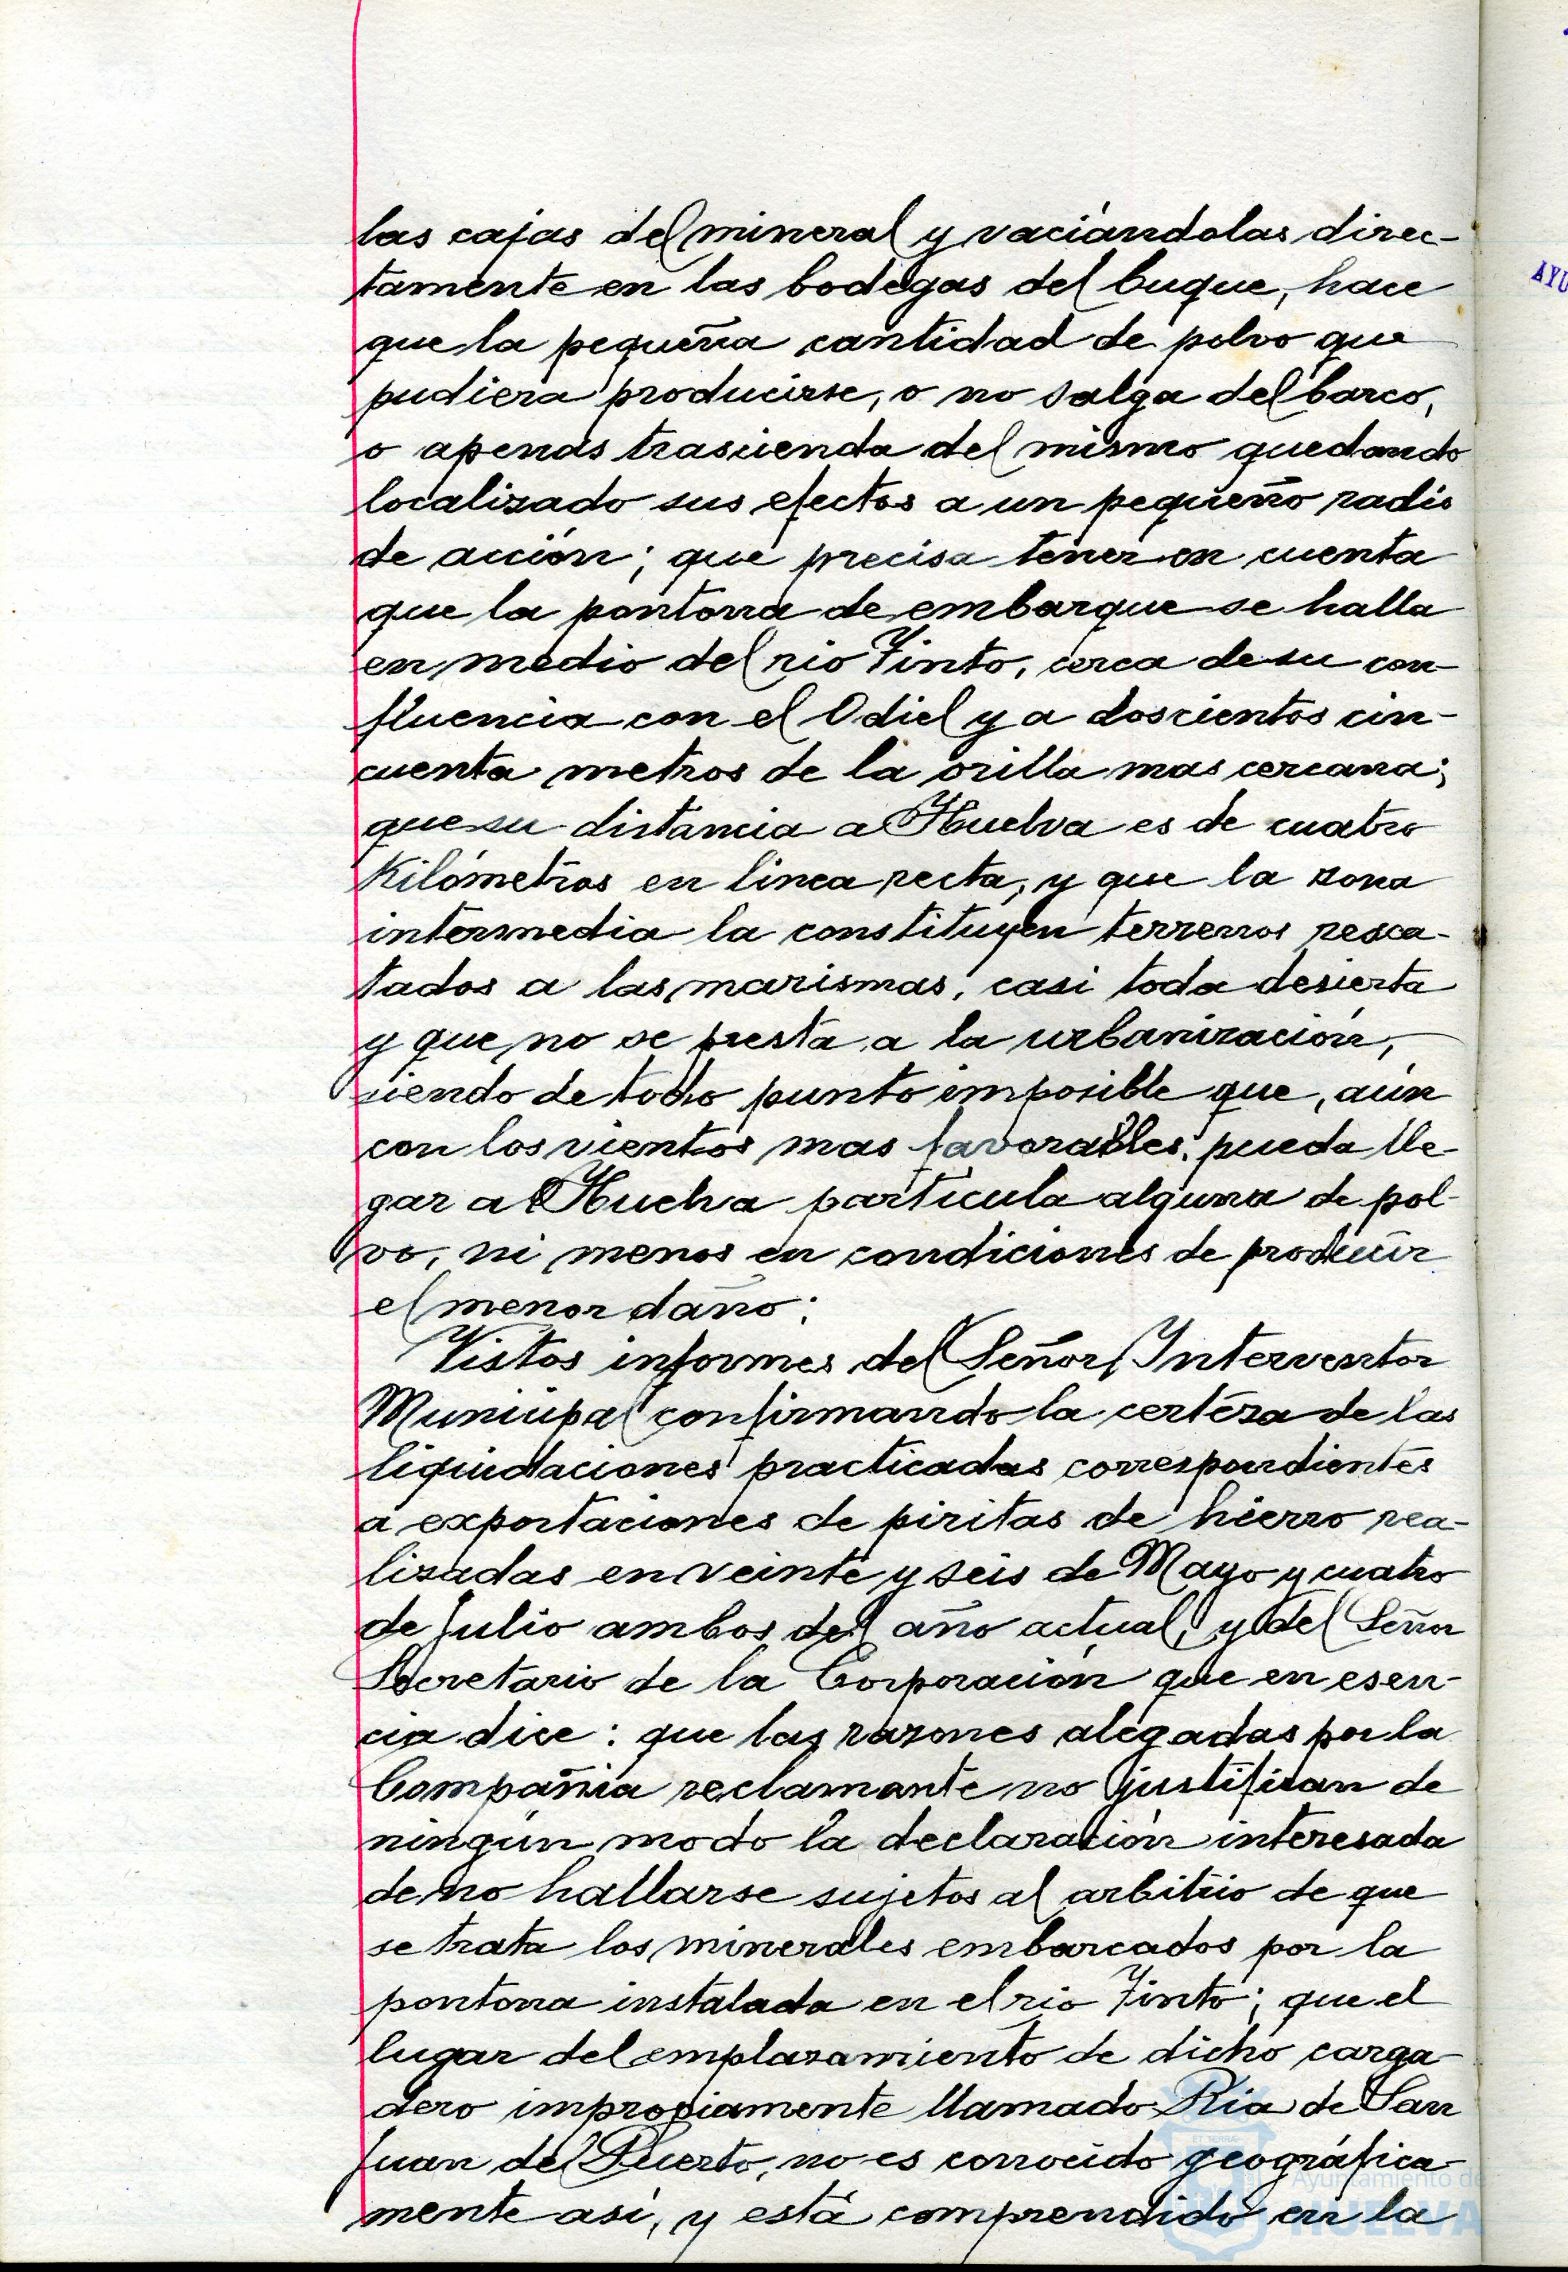 las cajas del mineral y vaciándolas direc-
tamente en las bodegas del buque, hace
que la pequeña cantidad de polvo que
pudiera producirse, o no salga del barco,
o apenas trascienda del mismo quedando
localizado sus efectos a un pequeño radio
de acción; que precisa tener en cuenta
que la pontona de embarque se halla
en medio del rio Tinto, cerca de su con-
fluencia con el Odiel y a doscientos cin-
cuenta metros de la orilla mas cercana;
que su distancia a Huelva es de cuatro
Kilómetros en linea recta, y que la zona
intermedia la constituyen terrenos resca-
tados a las marismas, casi toda desierta
y que no se presta a la urbanización,
siendo de todo punto imposible que, aún
con los vientos mas favorables, pueda lle-
gar a Huelva partícula alguna de pol-
vo, ni menos en condiciones de producir
el menor daño;
Vistos informes del Señor Interventor
Municipal confirmando la certeza de las
liquidaciones practicadas correspondientes
a exportaciones de piritas de hierro rea-
lizadas en veinte y seis de Mayo y cuatro
de Julio ambos del año actual, y del Señor
Secretario de la Corporación que en esen-
cia dice: que las razones alegadas por la
Compañia reclamante no justifican de
ningún modo la declaración interesada
de no hallarse sujetos al arbitrio de que
se trata los minerales embarcados por la
pontona instalada en el rio Tinto; que el
lugar del emplazamiento de dicho carga-
dero impropiamente llamado Ria de San
Juan del Puerto, no es conocido geográfica-
mente asi, y está comprendido en la
AYU
Ayuntamiento de
HUELVA